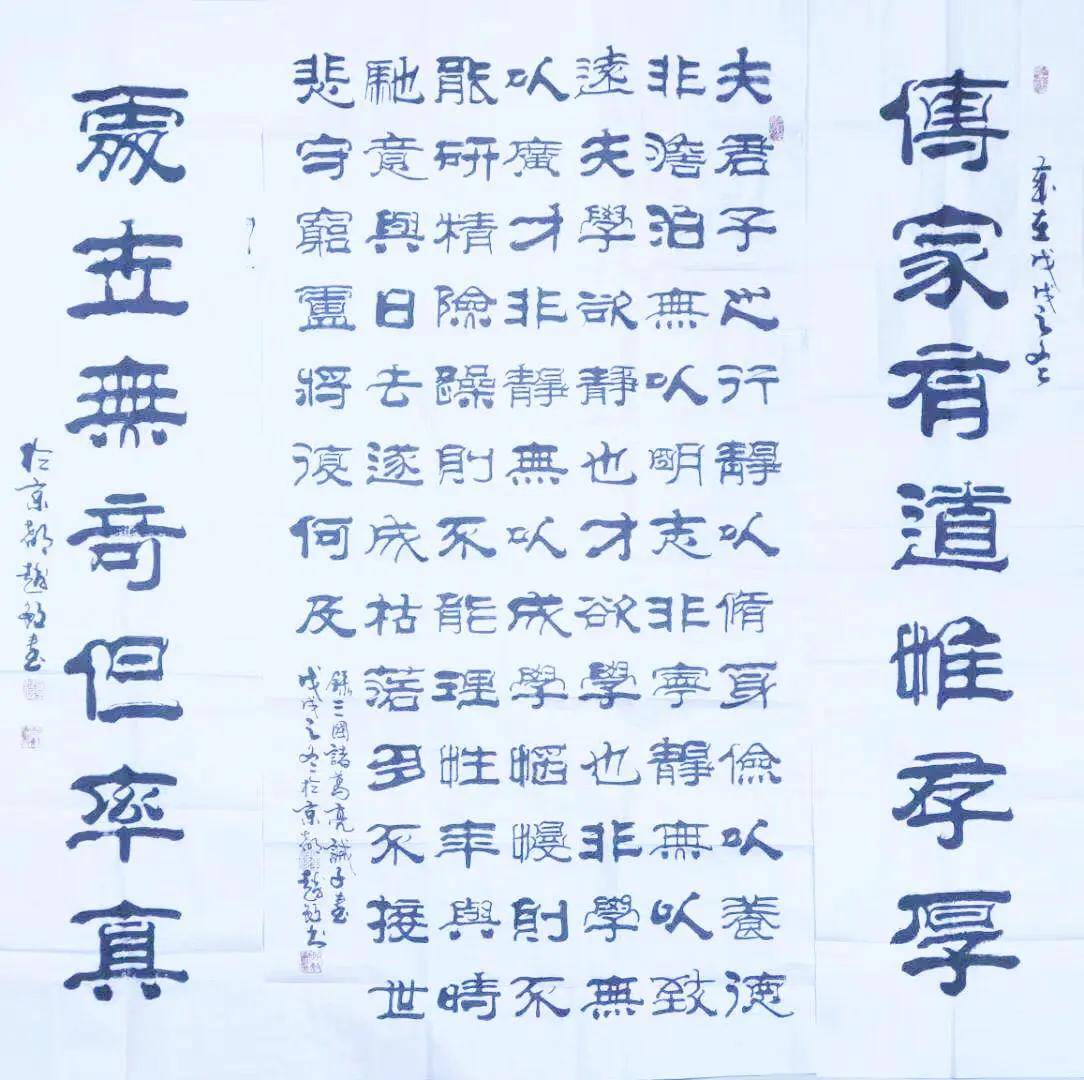 歲在戊戌之冬
傳家有道惟存厚
夫君子之行靜以脩身儉以養德
非澹泊無以明志非寧靜無以致
遠夫學欲靜也才欲學也非學無
以廣才非靜無以成學慆慢則不
能研精險躁則不能理性年與時
馳意與日去遂成枯落多不接世
悲守窮盧將復何及
錄三國諸葛亮誡子書
戊戌之冬於京都趙敏書
處世無奇但率真
於京都趙敏書